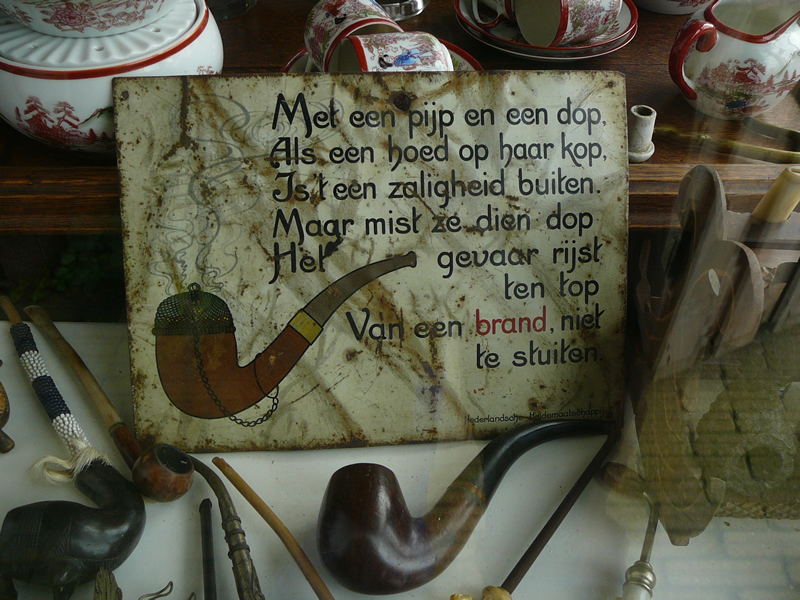 Met een pijp en een dop,
Als een hoed op haar kop,
Is 't een zaligheid buiten.
Maar mist ze dien dop
Het gevaar rijst
ten top
Van een brand, niet
te stuiten.
Nederlandsche Heidemaatschappij